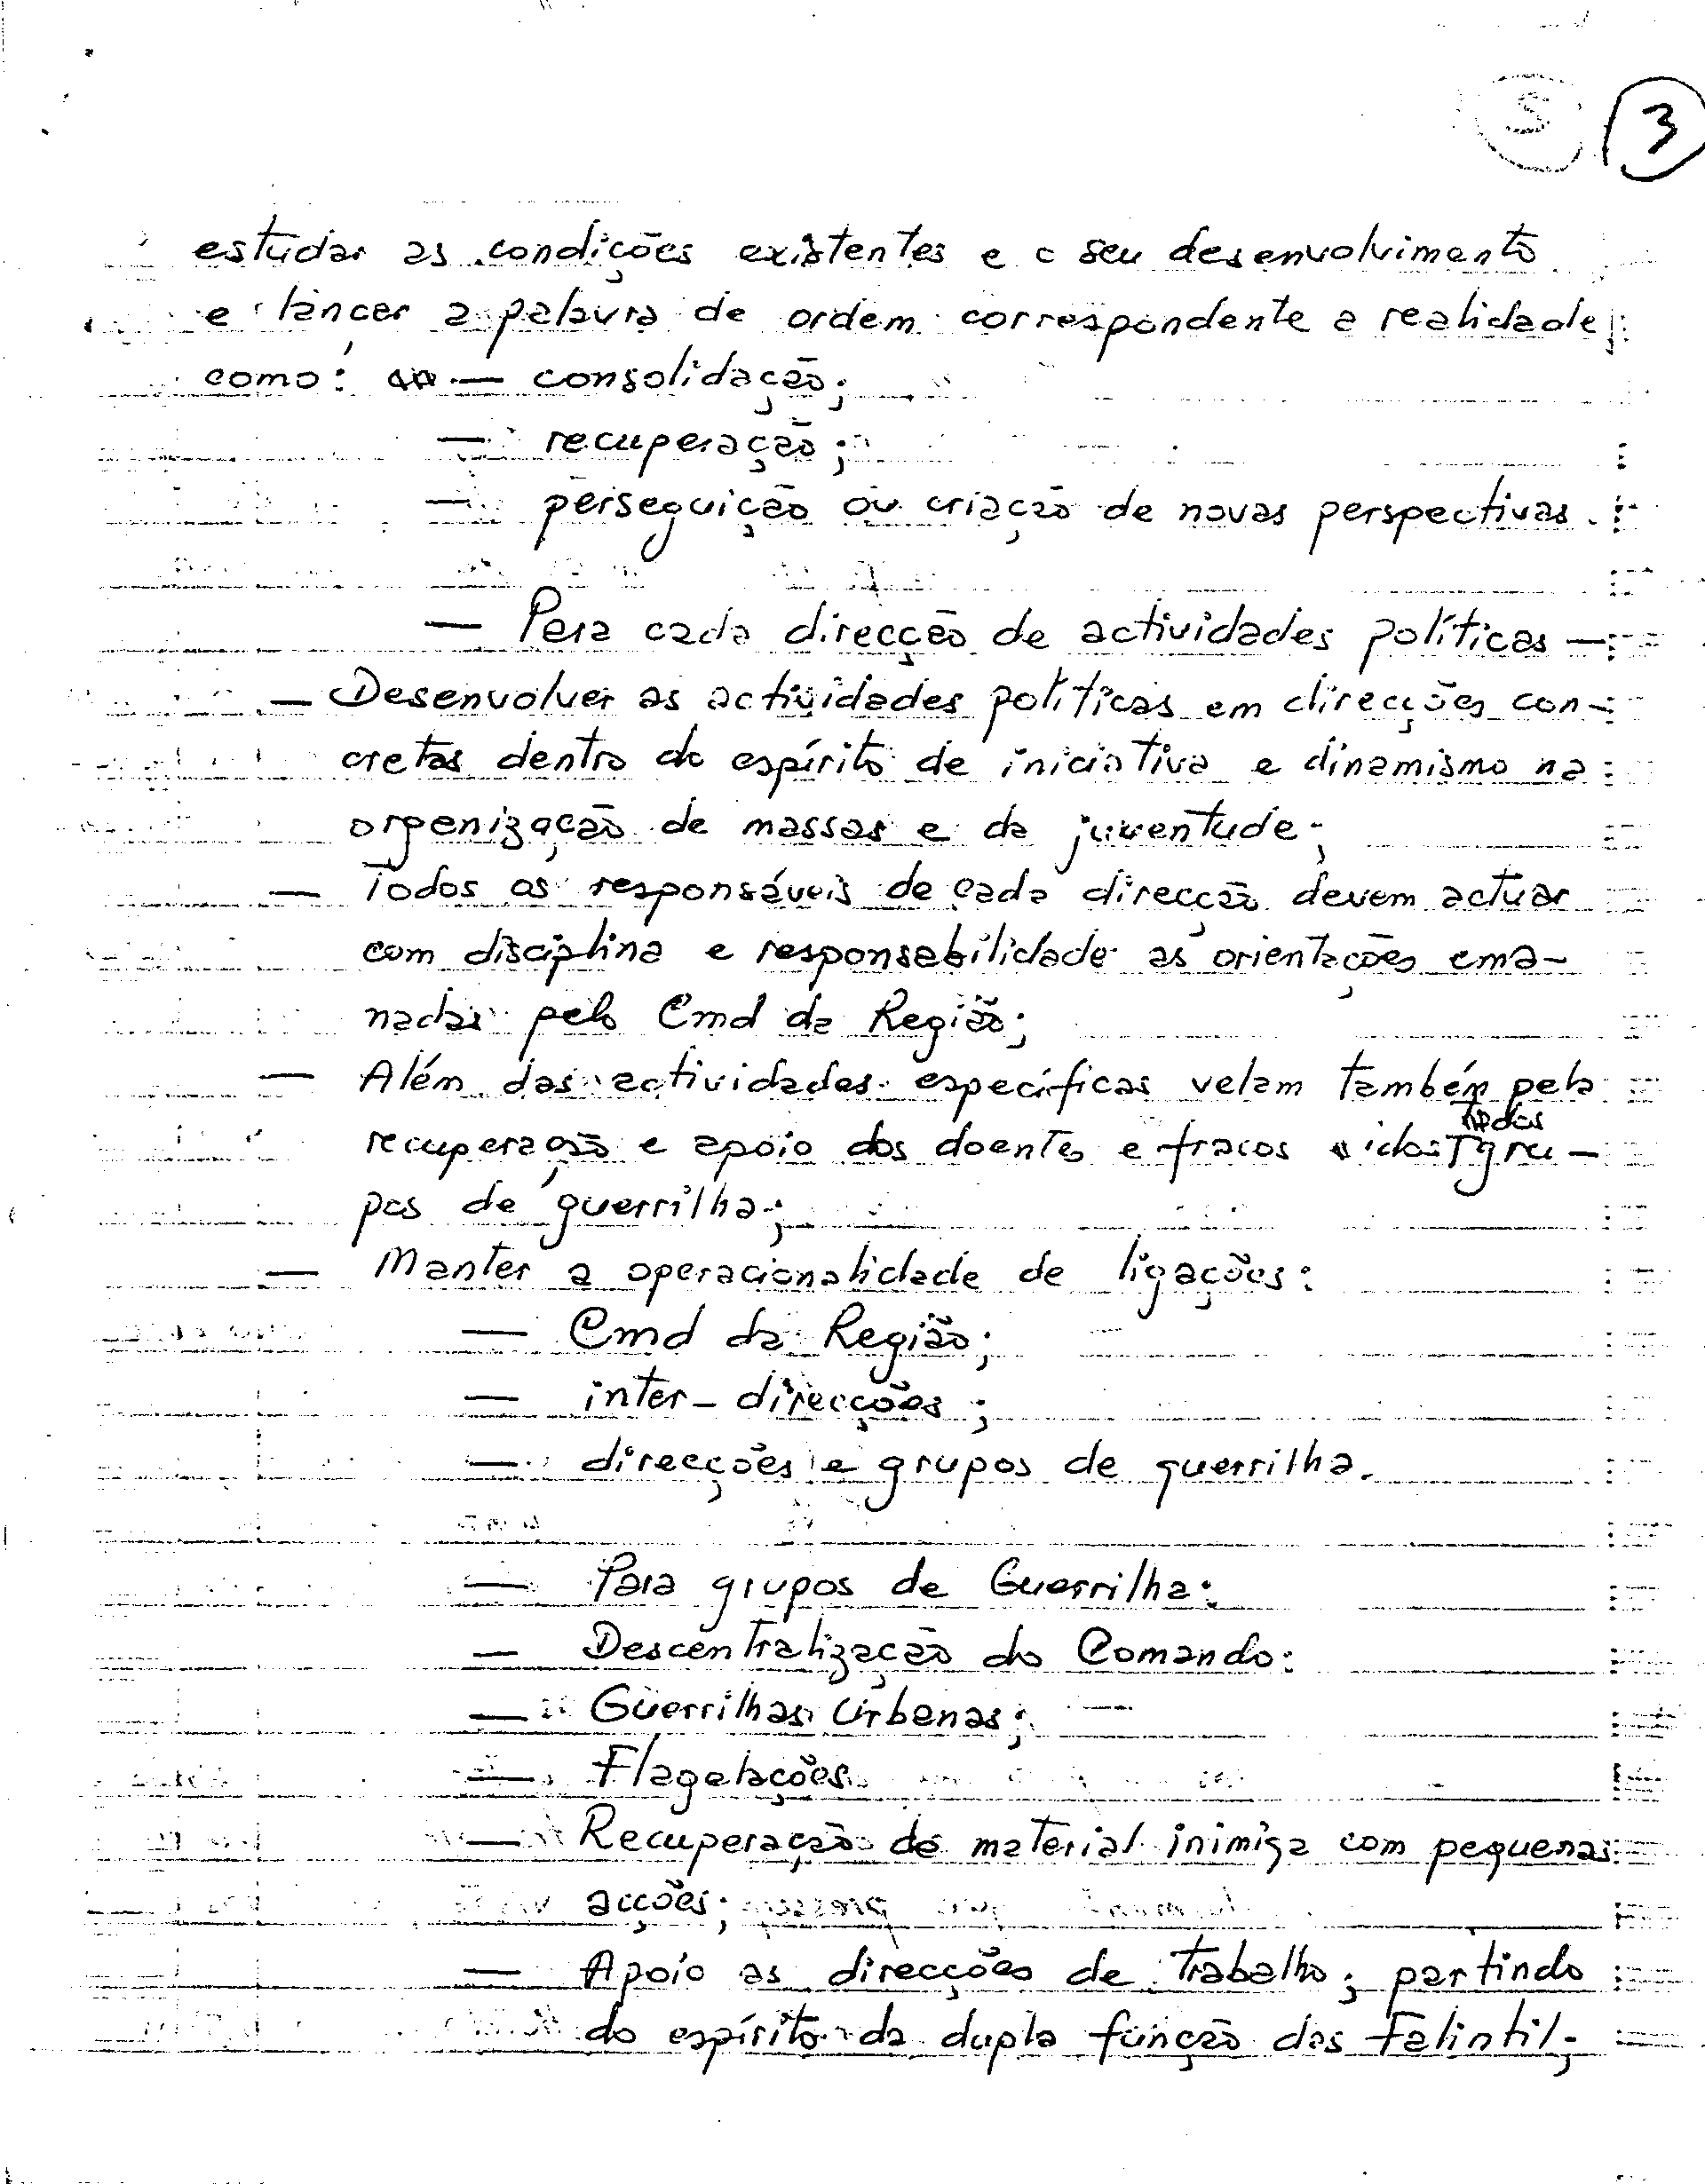 3
estudar as condições existentes e o seu desenvolvimento
e lançar a palavra de ordem correspondente a realidade,
como: — consolidação;
— recuperação;
— perseguição ou criação de novas perspectivas.
— Para cada direcção de actividades políticas —
— Desenvolver as actividades políticas em direcções con-
cretas dentro do espírito de iniciativa e dinamismo na
organização de massas e da juventude;
— Todos os responsáveis de cada direcção devem actuar
com disciplina e responsabilidade as orientações ema-
nadas pelo Cmd da Região;
— Além das actividades específicas velam também pela
todos
recuperação e apoio dos doentes e fracos gru-
pos de guerrilha;
— Manter a operacionalidade de ligações:
— Cmd da Região;
— inter-direcções;
— direcções e grupos de guerrilha.
— Para grupos de Guerrilha:
— Descentralização do Comando:
— Guerrilhas Urbanas;
— Flagelações
— Recuperação de material inimiga com pequenas
acções;
— Apoio as direcções de Trabalho; partindo
do espírito da dupla função das Falintil;